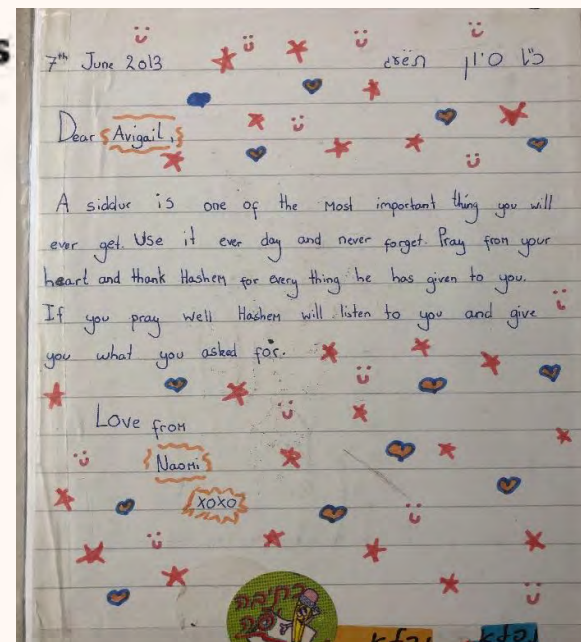 s
7th June 2013 כ"ט סיון תשע"ג
Dear Avigail,
A siddur is one of the most important thing you will
ever get. Use it ever day and never forget. Pray from your
heart and thank Hashem for every thing he has given to you.
If you pray well Hashem will listen to you and give
you what you asked for.
Love from
Naomi
xoxo
כתיבה